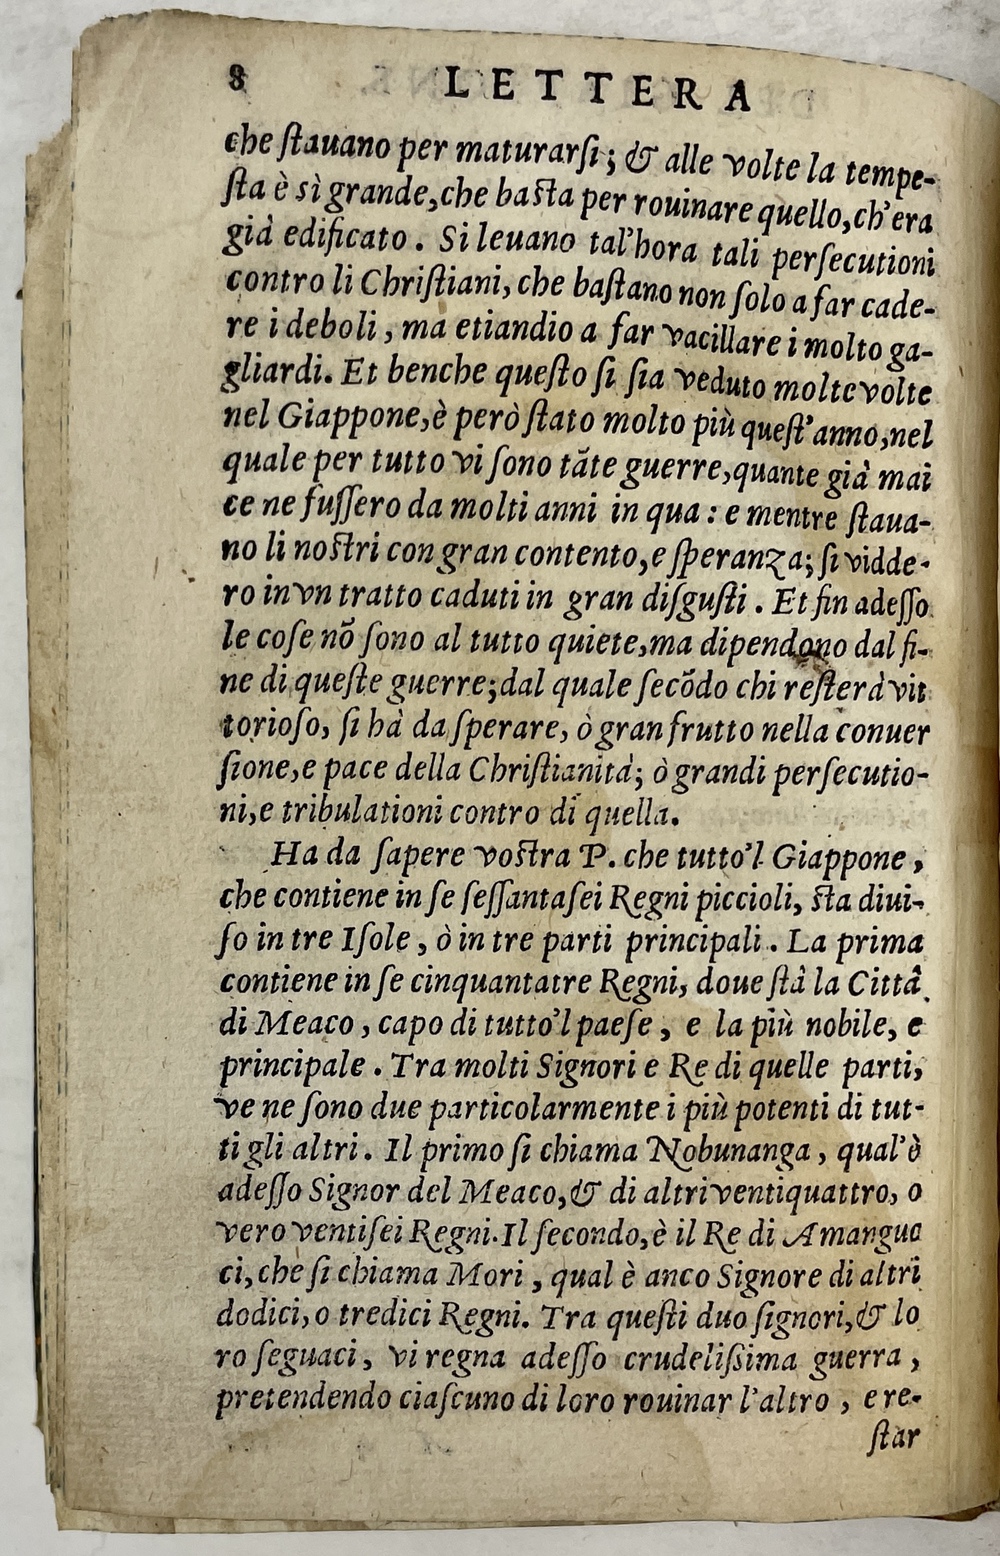 8 LETTERA
che ſtauano per maturarſi; & alle volte la tempe-
ſta è sì grande, che baſta per rouinare quello, ch'era
già edificato. Si leuano tal'hora tali perſecutioni
contro li Chriſtiani, che baſtano non ſolo a far cade-
re i deboli, ma etiandio a far vacillare i molto ga-
gliardi. Et benche queſto ſi ſia veduto molte volte
nel Giappone, è però ſtato molto più queſt'anno, nel
quale per tutto vi ſono tãte guerre, quante già mai
ce ne fuſſero da molti anni in qua: e mentre ſtaua-
no li noſtri con gran contento, e ſperanza; ſi vidde-
ro in vn tratto caduti in gran diſguſti. Et fin adeſſo
le coſe nõ ſono al tutto quiete, ma dipendono dal fi-
ne di queſte guerre; dal quale ſecõdo chi reſterà vit
torioſo, ſi hà da ſperare, ò gran frutto nella conuer
ſione, e pace della Chriſtianità; ò grandi perſecutio-
ni, e tribulationi contro di quella.
Ha da ſapere voſtra P. che tutto'l Giappone,
che contiene in ſe ſeſſantaſei Regni piccioli, ſta diui-
ſo in tre Iſole, ò in tre parti principali. La prima
contiene in ſe cinquantatre Regni, doue ſtà la Città
di Meaco, capo di tutto'l paeſe, e la più nobile, e
principale. Tra molti Signori e Re di quelle parti,
ve ne ſono due particolarmente i più potenti di tut-
ti gli altri. Il primo ſi chiama Nobunanga, qual'è
adeſſo Signor del Meaco, & di altri ventiquattro, o
vero ventiſei Regni. Il ſecondo, è il Re di Amangua
ci, che ſi chiama Mori, qual è anco Signore di altri
dodici, o tredici Regni. Tra queſti duo ſignori, & lo
ro ſeguaci, vi regna adeſſo crudeliſsima guerra,
pretendendo ciaſcuno di loro rouinar l'altro, e re-
ſtar